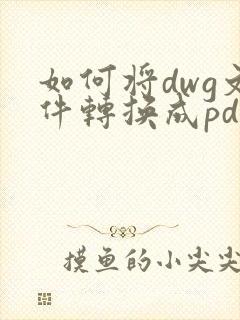 如何将dwg文
件轉換成pd
摸鱼的小尖尖